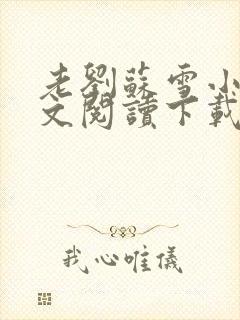 老劉蘇雪小
文閱讀下載
我心唯儀